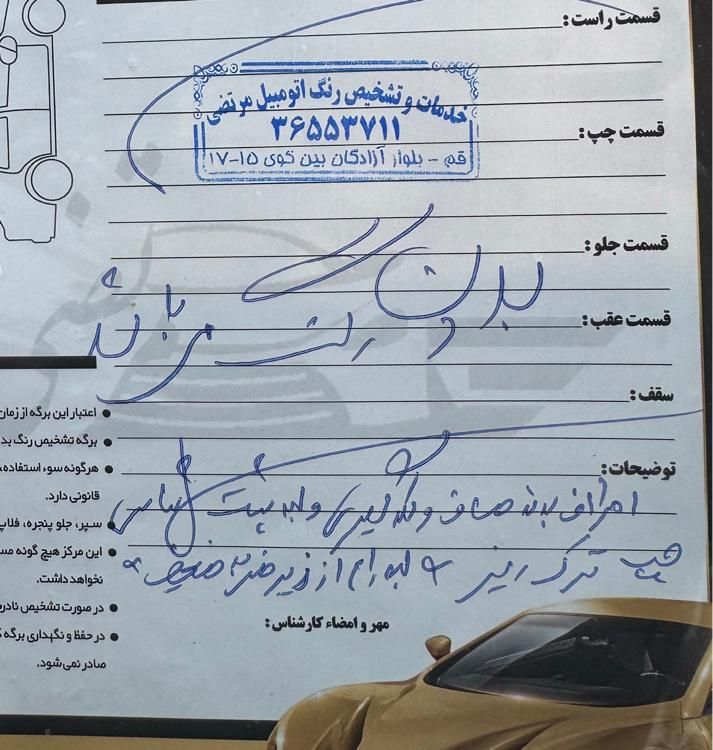 قسمت راست:
خدمات و تشخیص رنگ اتومبیل مرتضی
۳۶۵۵۳۷۱۱
قم - بلوار آزادگان بین کوی ۱۵-۱۷
قسمت چپ:
قسمت جلو:
بدون رنگ
قسمت عقب:
می باشد
سقف:
توضیحات:
اطراف بدنه صاف و لکه گیری و لبه پشت
چپ ترک ریز لبه رام از زیر ضربه ضعیف
مهر و امضاء کارشناس:
اعتبار این برگه از زمان
برگه تشخیص رنگ بد
هرگونه سوء استفاده،
قانونی دارد.
سپر، جلو پنجره، فلاپ
این مرکز هیچ گونه مس
نخواهد داشت.
در صورت تشخیص نادر
در حفظ و نگهداری برگه ک
صادر نمی شود.